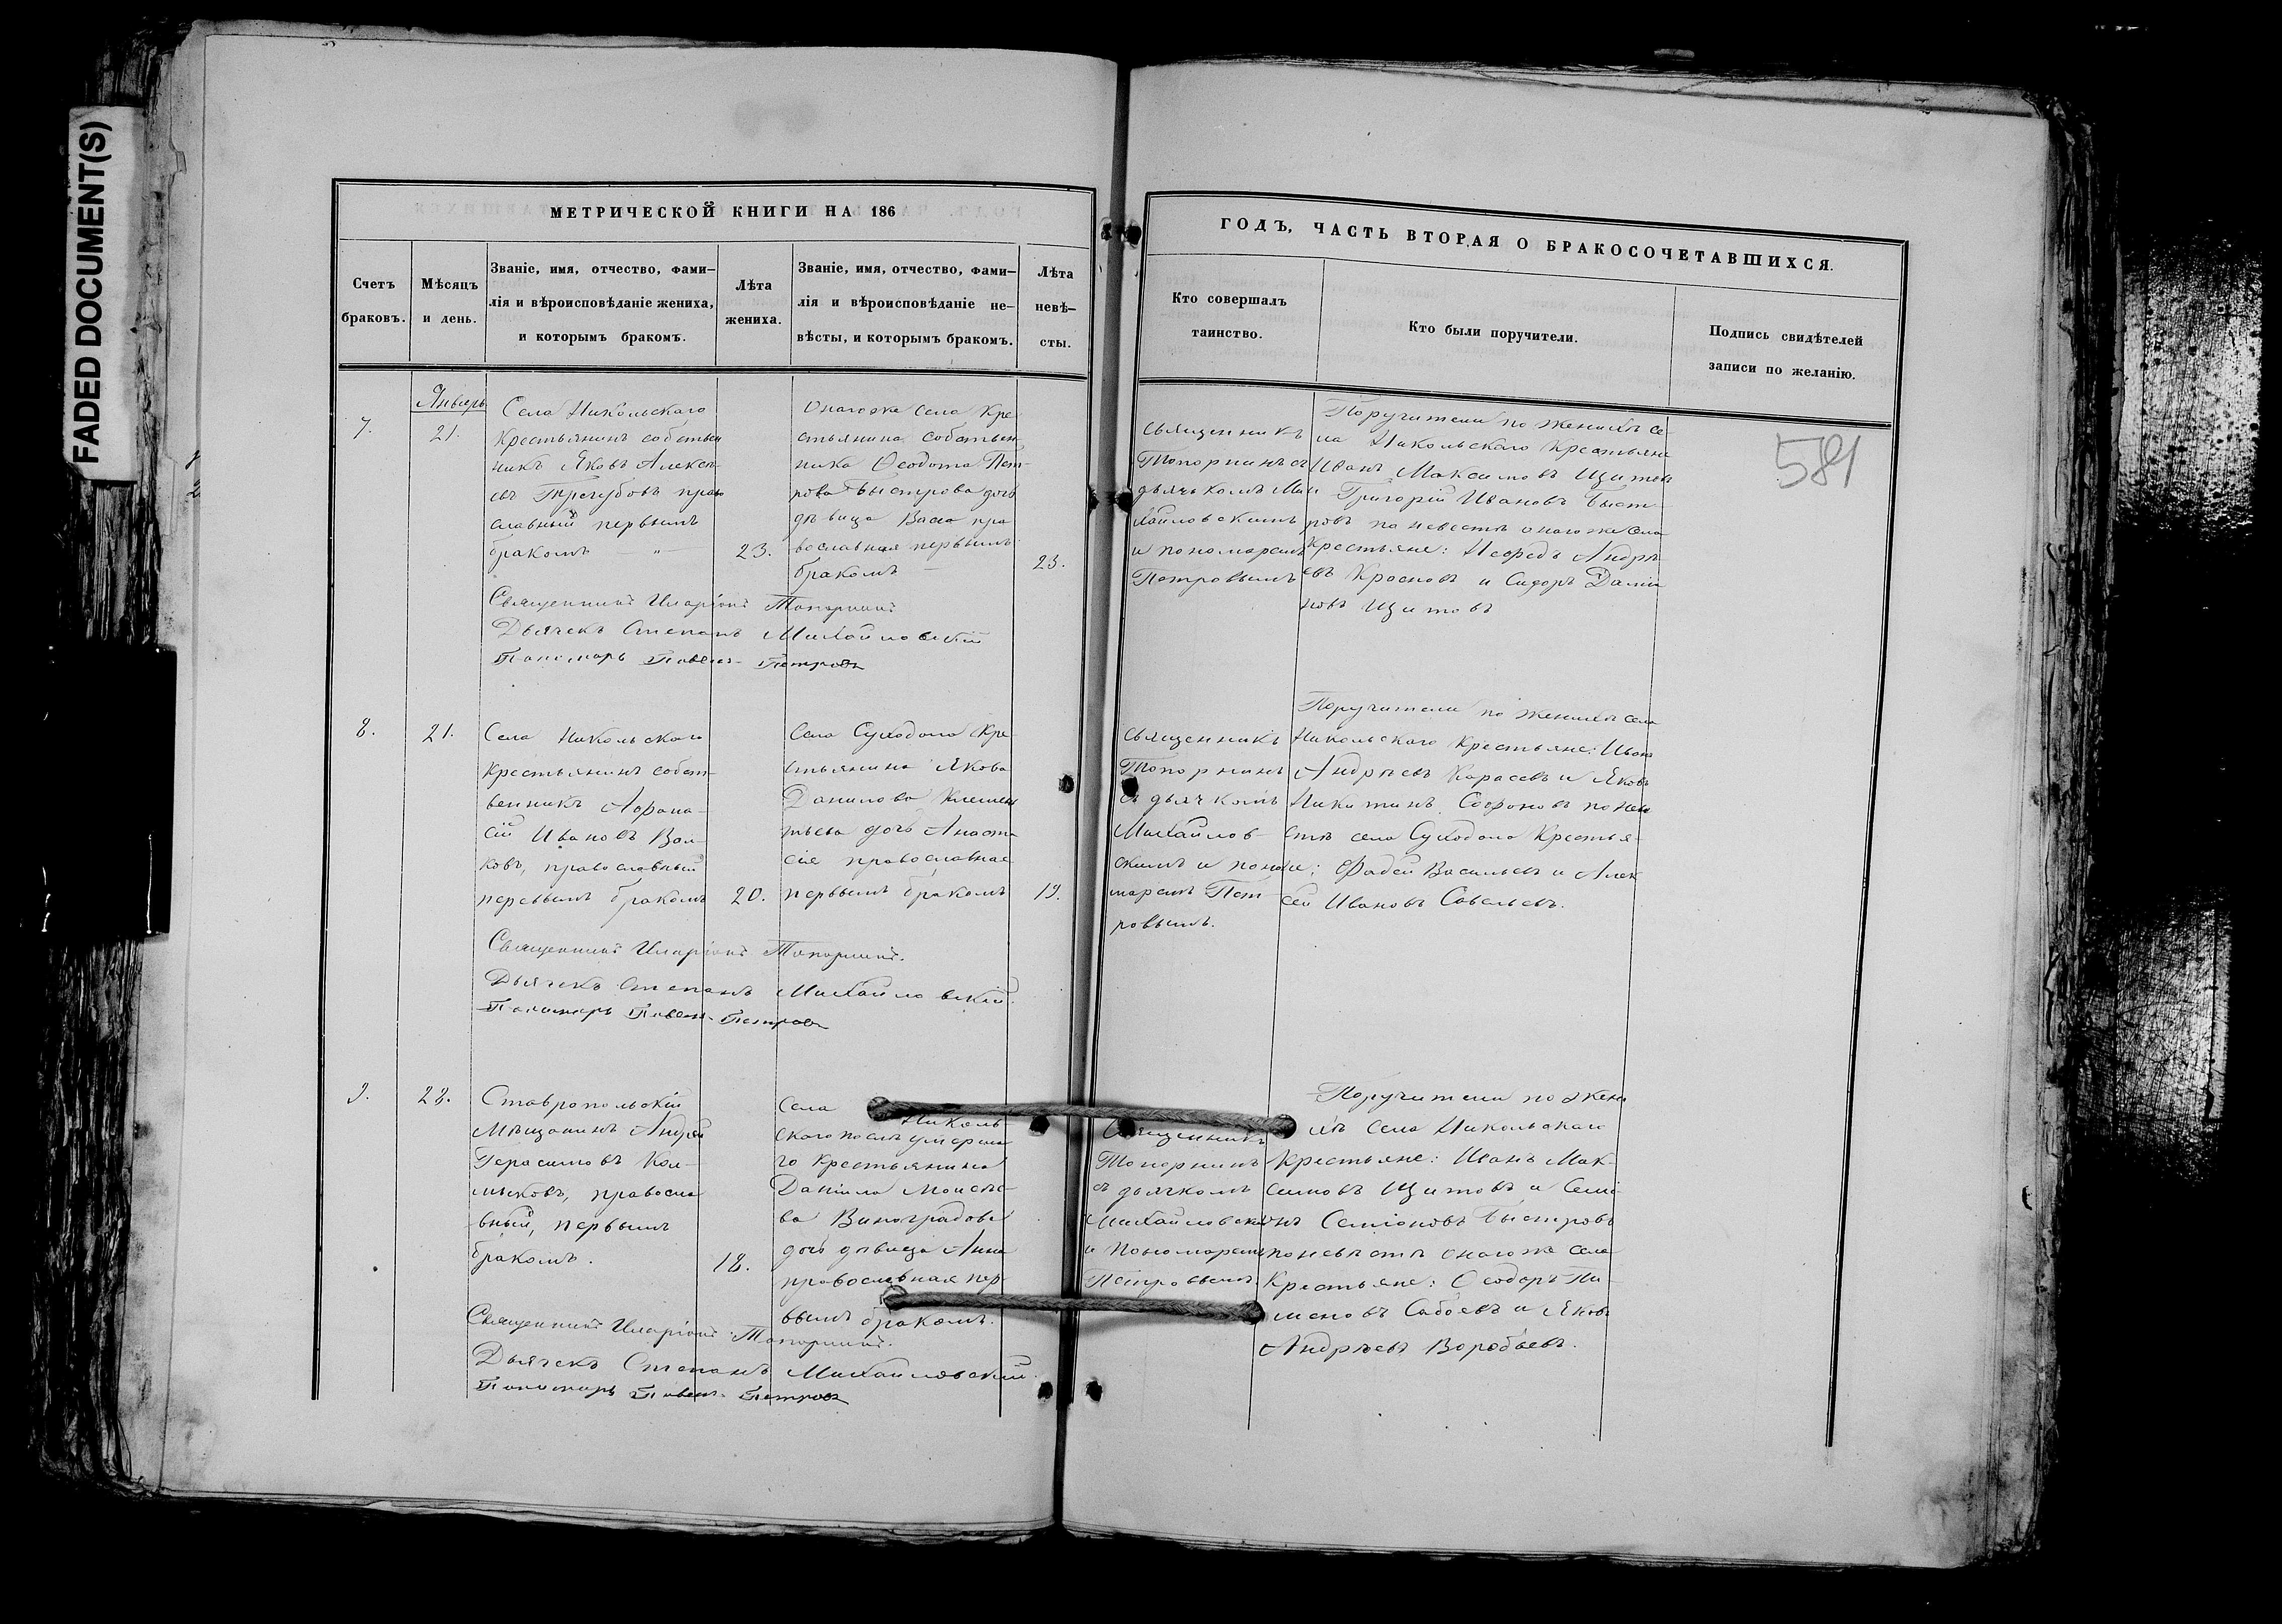 FADED DOCUMENT(S)
МЕТРИЧЕСКОЙ КНИГИ НА 186
Счетъ браковъ.
Мѣсяцъ и день.
Званіе, имя, отчество, фами-
лія и вѣроисповѣданіе жениха,
и которымъ бракомъ.
Лѣта жениха.
Званіе, имя, отчество, фами-
лія и вѣроисповѣданіе не-
вѣсты, и которымъ бракомъ.
Лѣта невѣ-
сты.
7.
Январь
21.
Села Никольскаго
Крестьянинъ собствен
никъ Яковъ Алексѣ-
евъ Трегубовъ право
славный первымъ
бракомъ — " —
23.
Онагоже села Кре
стьянина собствен-
ника Ѳеодота Пет-
рова Быстрова дочь
дѣвица Васса пра
вославная первымъ
бракомъ —
23.
Священникъ Иларіонъ Топорнинъ
Дьячекъ Степанъ Михайловскій
Пономарь Павелъ Петровъ
8.
21.
Села Никольскаго
Крестьянинъ собст-
венникъ Афона-
сій Ивановъ Вол-
ковъ, православный
первымъ бракомъ
20.
Села Суходола Кре
стьянина Якова
Данилова Клемен
тьева дочь Анаста
сія православная
первымъ бракомъ
19.
Священникъ Иларіонъ Топорнинъ.
Дьячекъ Степанъ Михайловскій.
Пономарь Павелъ Петровъ
9.
28.
Ставропольскій
Мѣщанинъ Андрей
Герасимовъ Кол-
мыковъ, правосла
вный, первымъ
бракомъ.
18.
Села Николь
скаго послѣ умерша
го крестьянина
Даніила Моисѣе-
ва Виноградова
дочь дѣвица Анна
православная пер-
вымъ бракомъ.
Священникъ Иларіонъ Топорнинъ.
Дьячекъ Степанъ Михайловскій.
Пономарь Павелъ Петровъ
ГОДЪ, ЧАСТЬ ВТОРАЯ О БРАКОСОЧЕТАВШИХСЯ.
Кто совершалъ
таинство.
Кто были поручители.
Подпись свидѣтелей
записи по желанію.
581
Священникъ
Топорнинъ съ
дьячкомъ Ми
хайловскимъ
и пономаремъ
Петровымъ
Поручители по женихѣ се-
ла Никольскаго крестьяне
Иванъ Максимовъ Щитовъ
и Григорій Ивановъ Быст-
ровъ по невестѣ онагоже села
Крестьяне: Нефедъ Андрѣ-
евъ Красновъ и Сидоръ Даміа
новъ Щитовъ
Священникъ
Топорнинъ
съ дьячкомъ
Михайлов-
скимъ и поно
маремъ Пет
ровымъ.
Поручители по женихѣ села
Никольскаго Крестьяне: Иванъ
Андрѣевъ Карасевъ и Яковъ
Никитинъ Софоновъ по неве
стѣ села Суходола Крестья-
не: Фадей Васильевъ и Алек
сей Ивановъ Савельевъ.
Священникъ
Топорнинъ
съ дьячкомъ
Михайловскимъ
и Пономаремъ
Петровымъ
Поручители по жени
хѣ села Никольскаго
Крестьяне: Иванъ Мак-
симовъ Щитовъ и Семі-
онъ Семіоновъ Быстровъ
по невѣстѣ онагоже села
Крестьяне: Ѳеодоръ Пи-
меновъ Сабоевъ и Яковъ
Андрѣевъ Воробьевъ.